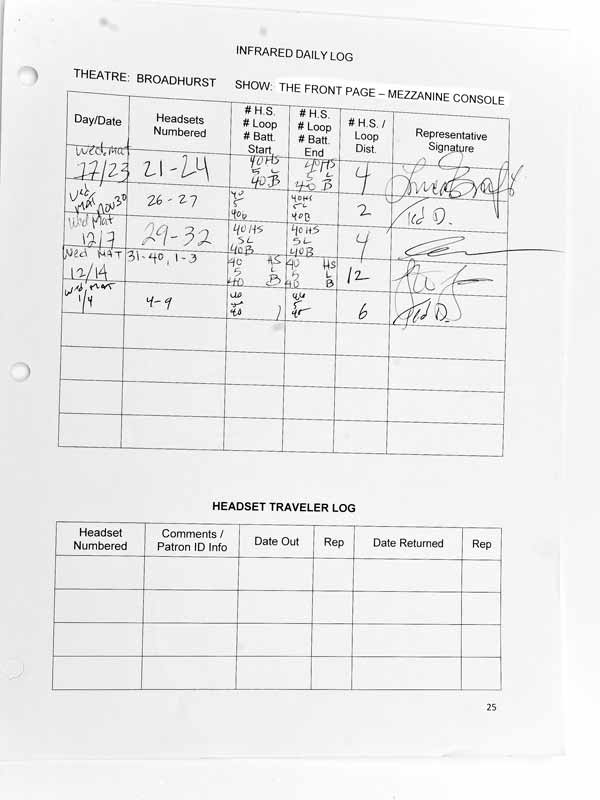 INFRARED DAILY LOG
THEATRE: BROADHURST SHOW: THE FRONT PAGE – MEZZANINE CONSOLE
Day/Date Headsets Numbered # H.S. # Loop # Batt. Start # H.S. # Loop # Batt. End # H.S. / Loop Dist. Representative Signature
Wed. mat
/23 21-24 40HS 5 L 40 B 40HS 5 L 40 B 4
Wed MAT Nov 30 26-27 40 5 40B 40HS 5L 40B 2 Ted D.
Wed Mat
12/7 29-32 40HS 5L 40B 40HS 5L 40B 4
Wed MAT 31-40, 1-3
12/14 40 HS 5 L 40 B 40 HS 5 L 40 B 12
Wed Mat
1/4 4-9 40 40 6 Ted D.
HEADSET TRAVELER LOG
Headset Numbered Comments / Patron ID Info Date Out Rep Date Returned Rep
25